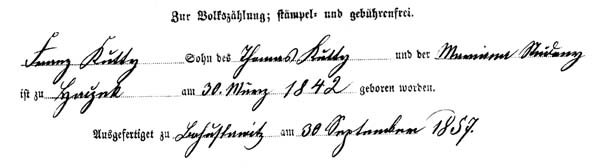 Zur Volkszählung; stämpel- und gebührenfrei.
Franz Kutty Sohn des Thomas Kutty und der Mariana Studeny
ist zu am 30. März 1842 geboren worden.
Ausgefertiget zu Bohuslawitz am 30 September 1857.